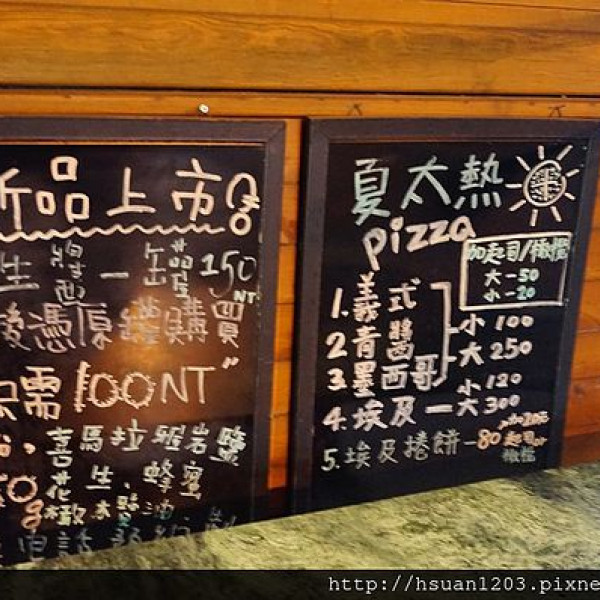 新品上市
生醬一罐150
NT
憑原罐購買
只需100NT"
喜馬拉雅岩鹽
花生、蜂蜜
g橄欖油
電話
夏太熱
pizza
加起司/橄欖
大-50
小-20
1.義式
2青醬
3.墨西哥
小100
大250
小120
4.埃及一大300
5.埃及捲餅-80
起司
橄欖
http://hsuan1203.pixne